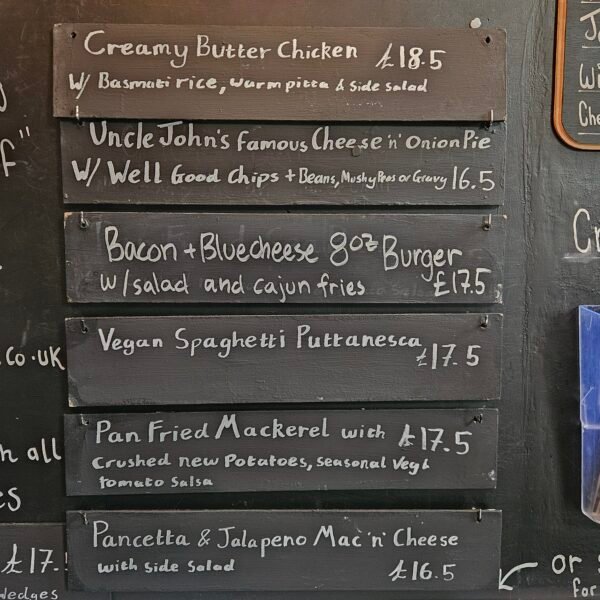 Creamy Butter Chicken £18.5
W/ Basmati rice, warm pitta & side salad
Uncle John's Famous Cheese 'n' Onion Pie
W/ Well Good Chips + Beans, Mushy Peas or Gravy 16.5
Bacon + Bluecheese 8oz Burger
w/salad and cajun fries £17.5
Vegan Spaghetti Puttanesca
£17.5
Pan Fried Mackerel with £17.5
Crushed new Potatoes, seasonal Veg &
tomato Salsa
Pancetta & Jalapeno Mac 'n' Cheese
with side salad £16.5
.co.uk
all
£17.
Wedges
or
for